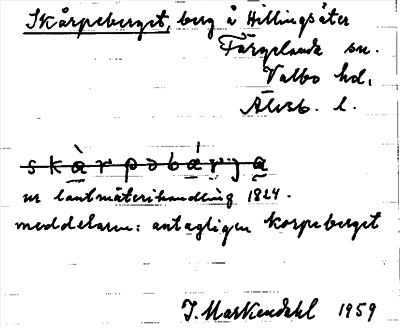 Skårpeberget, berg å Hillingsäter
Färgelanda sn.
Valbo hd.
Älvsb. l.
skàrpəbárja
ur lantmäterihandling 1824.
meddelaren: antagligen korpeberget
J. Markendahl 1959